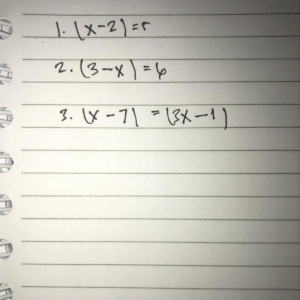 1. |x-2|=5
2. |3-x|=6
3. |x-7| =|3x-1|